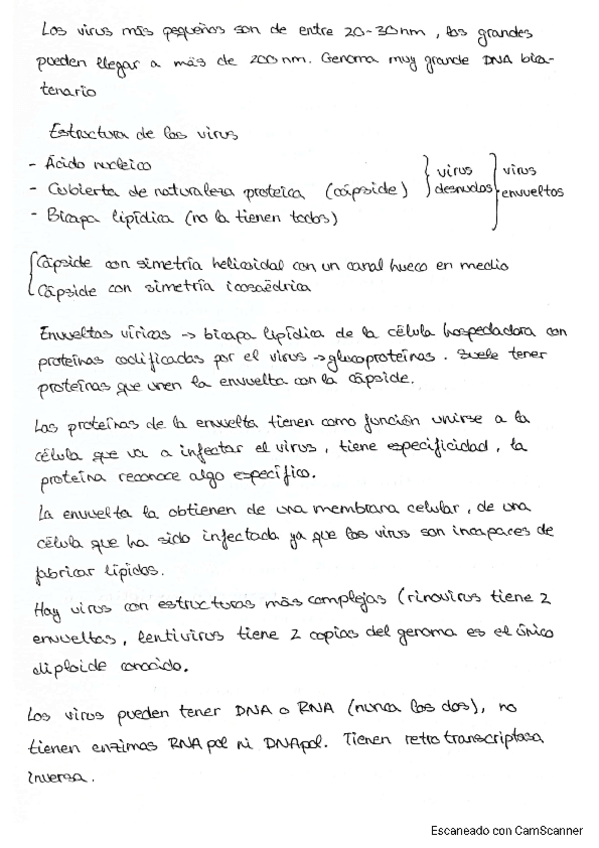 Los virus más pequeños son de entre 20-30nm, los grandes
pueden llegar a más de 200nm. Genoma muy grande DNA bica-
tenario
Estructura de los virus
- Ácido nucleico
- Cubierta de naturaleza proteica (cápside)
- Bicapa lipídica (no la tienen todos)
virus
desnudos
virus
envueltos
Cápside con simetría helicoidal con un canal hueco en medio
Cápside con simetría icosaédrica
Envueltas víricas → bicapa lipídica de la célula hospedadora con
proteínas codificadas por el virus → glucoproteínas. Suele tener
proteínas que unen la envuelta con la cápside.
Las proteínas de la envuelta tienen como función unirse a la
célula que va a infectar el virus, tiene especificidad, la
proteína reconoce algo específico.
La envuelta la obtienen de una membrana celular, de una
célula que ha sido infectada ya que los virus son incapaces de
fabricar lípidos.
Hay virus con estructuras más complejas (rinovirus tiene 2
envueltas, lentivirus tiene 2 copias del genoma es el único
diploide conocido.
Los virus pueden tener DNA o RNA (nunca los dos), no
tienen enzimas RNApol ni DNApol. Tienen retrotranscriptasa
inversa.
Escaneado con CamScanner